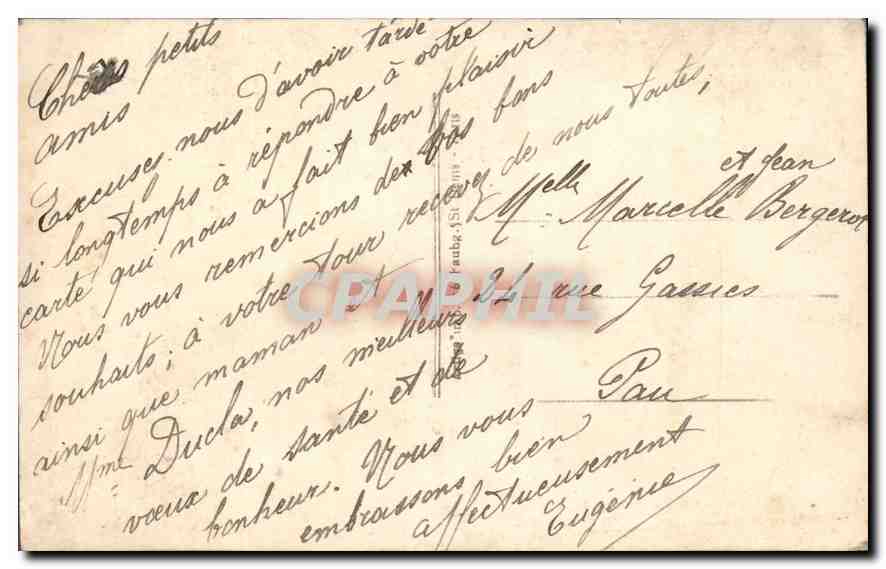 Chers petits
amis
Excusez-nous d'avoir tardé
si longtemps à répondre à votre
carte qui nous a fait bien plaisir
Nous vous remercions de vos bons
souhaits; à votre tour recevez de nous toutes,
ainsi que maman et
Mme Ducla, nos meilleurs
vœux de santé et de
bonheur. Nous vous
embrassons bien
affectueusement
Eugénie
et Jean
Melle Marcelle Bergerot
24 rue Gassies
Pau
Faubg. St
CPAPHIL